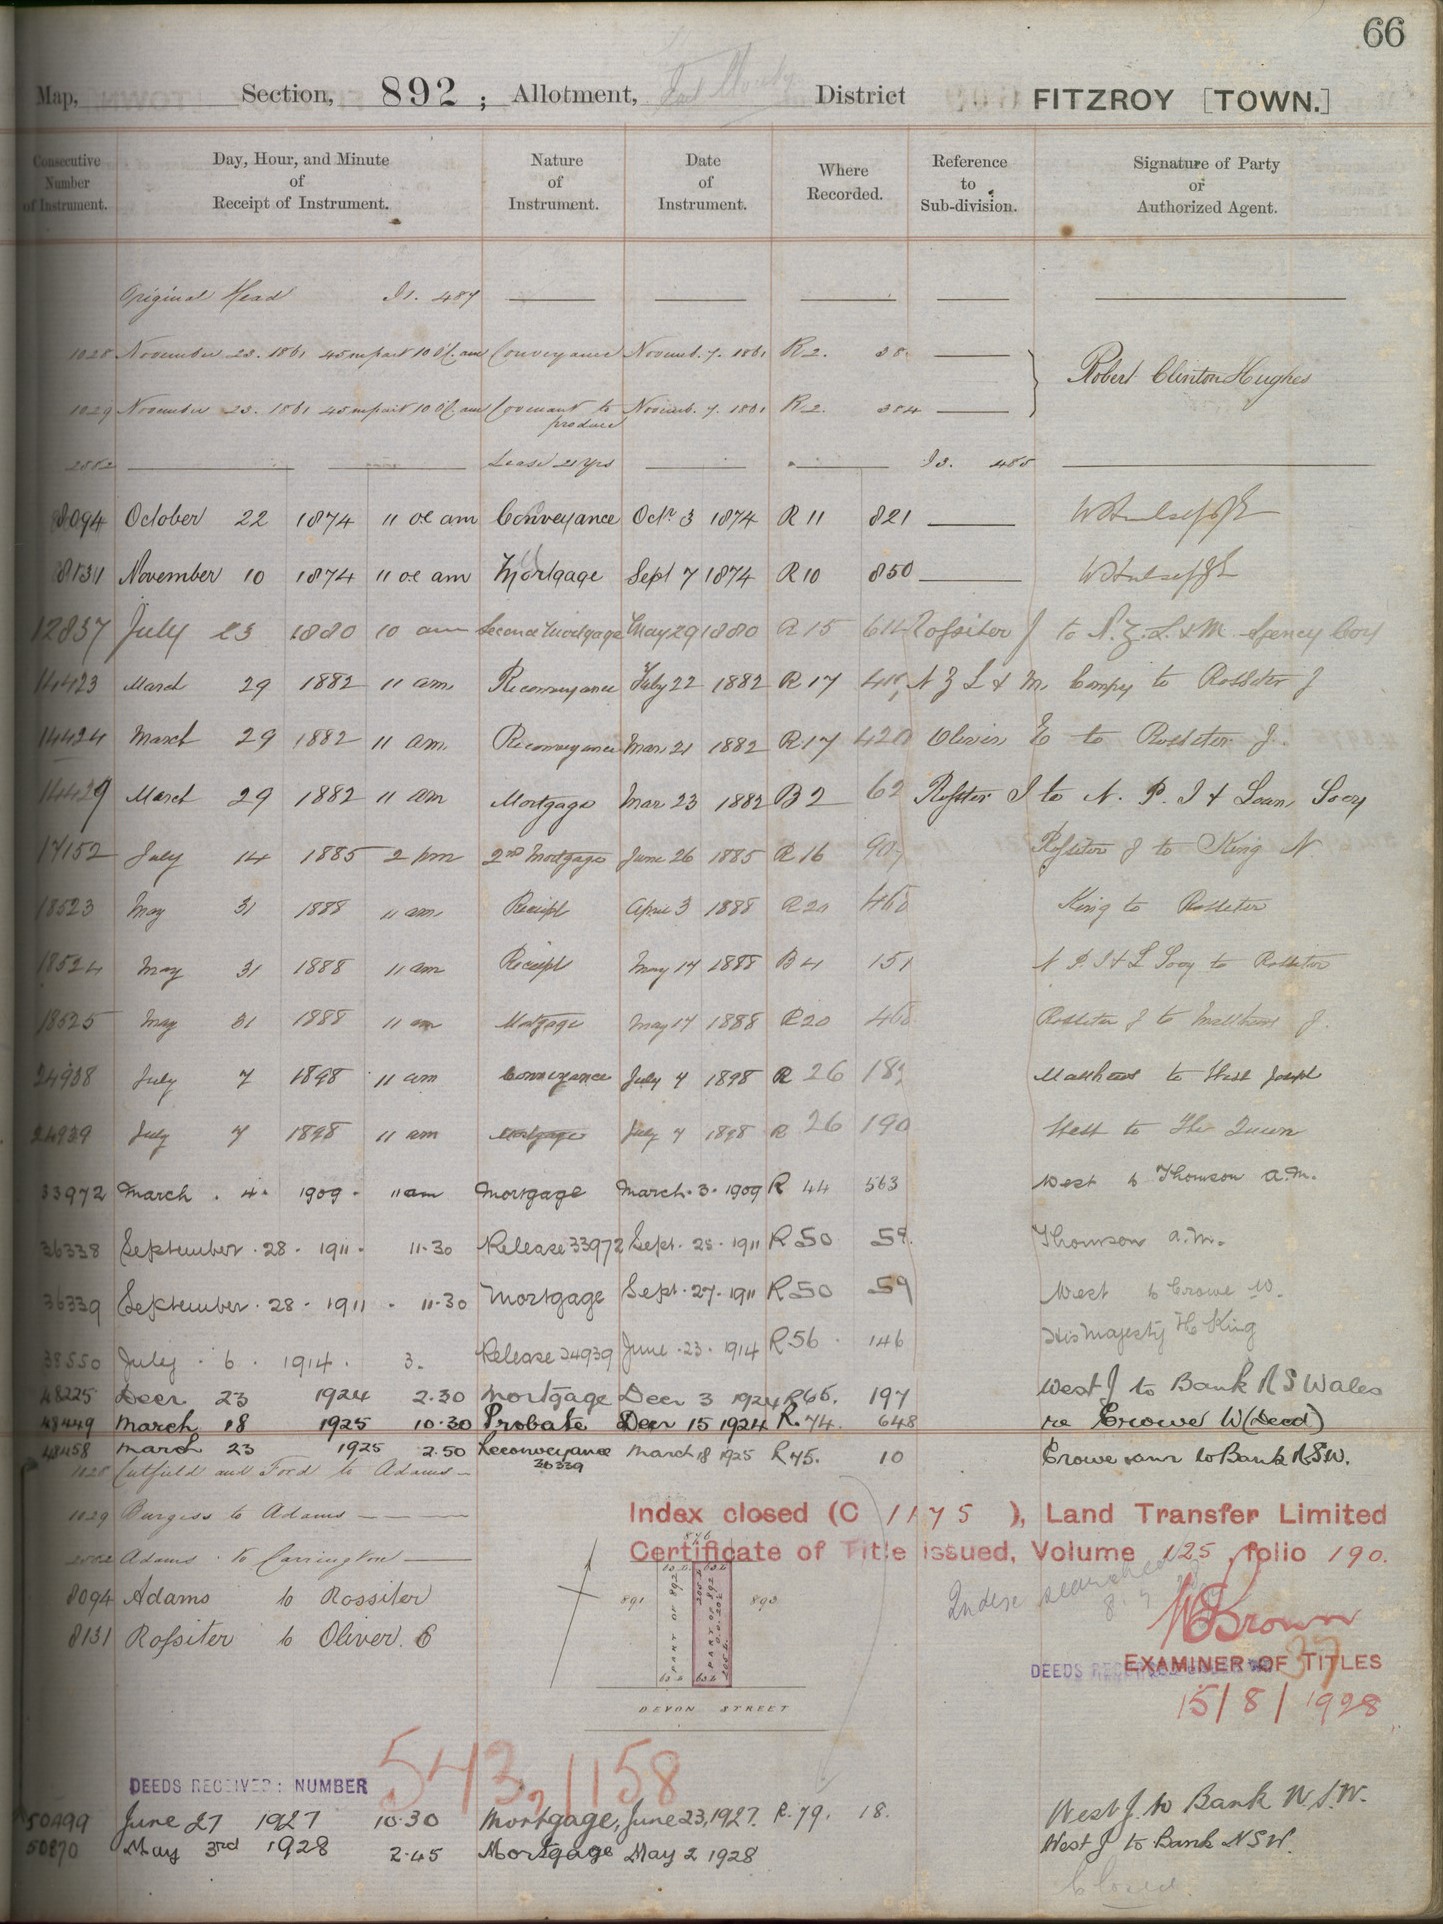 66
Map, Section, 892 ; Allotment, District FITZROY [TOWN.]
Consecutive Number of Instrument. Day, Hour, and Minute of Receipt of Instrument. Nature of Instrument. Date of Instrument. Where Recorded. Reference to Sub-division. Signature of Party or Authorized Agent.
Original Head I1. 487
1028 November 23. 1861 45 m past 10 Oc. am Conveyance Novemb. 7. 1861 R2. 38
Robert Clinton Hughes
1029 November 23. 1861 45 m past 10 Oc. am Covenant to produce Novemb. 7. 1861 R2. 384
2882 Lease 21 Yrs I3. 485
8094 October 22 1874 11 oc am Conveyance Octr 3 1874 R 11 821
8131 November 10 1874 11 oc am Mortgage Sept 7 1874 R10 850
12837 July 23 1880 10 am Second Mortgage May 29 1880 R 15 614 Rossiter J to N.Z. L. & M. Agency Coy
14423 March 29 1882 11 am. Reconveyance Feby 22 1882 R 17 N Z L & M Compy to Rossiter J
14424 March 29 1882 11 am. Reconveyance Mar 21 1882 R17 420 Oliver E to Rossiter J.
14429 March 29 1882 11 am Mortgage Mar 23 1882 B2 62 Rossiter J to N. P. I & Loan Socy
17152 July 14 1885 2 pm 2nd Mortgage June 26 1885 R 16 907 Rossiter J to King N
18523 May 31 1888 11 am Receipt April 3 1888 R20 King to Rossiter
18524 May 31 1888 11 am Receipt May 17 1888 B4 151 N P. I & L Socy to Rossiter
18525 May 31 1888 11 am Mortgage May 17 1888 R20 Rossiter J to Matthews J.
24938 July 7 1898 11 am Conveyance July 4 1898 R 26 Matthews to West Joseph
24939 July 7 1898 11 am Mortgage July 4 1898 R 26 190 West to The Queen
33972 March . 4. 1909. 11 am Mortgage March. 3. 1909 R 44 563 West to Thomson A.M.
36338 September. 28. 1911. 11.30 Release 33972 Sept. 25. 1911 R50 59. Thomson A.M.
36339 September. 28. 1911 . 11.30 Mortgage Sept. 27. 1911 R50 59 West to Crowe W.
38550 July . 6. 1914. 3. Release 24939 June. 23. 1914 R56. 146 His Majesty The King
48225 Decr 23 1924 2.30 Mortgage Decr 3 1924 R65. 197 West J to Bank N S Wales
48449 March 18 1925 10.30 Probate Decr 15 1924 R. 74. 648 re Crowe W (Decd)
48458 March 23 1925 2.50 Reconveyance 36339 March 18 1925 R45. 10 Crowe to Bank N.S.W.
1028 Cutfield and Ford to Adams
1029 Burgess to Adams
2882 Adams to Carrington
8094 Adams to Rossiter
8131 Rossiter to Oliver. E
Index closed (C 1175 ), Land Transfer Limited
Certificate of Title issued, Volume 125, folio 190.
Index searched
W Brown
EXAMINER OF TITLES
15/8/1928
876
891
PART OF 892
PART OF 892
893
DEVON STREET
543, 1158
DEEDS RECEIVED: NUMBER
50499 June 27 1927 10.30 Mortgage, June 23, 1927. R. 79. 18. West J. to Bank N.S.W.
50870 May 3rd 1928 2.45 Mortgage May 2 1928 West J to Bank N S W.
Closed